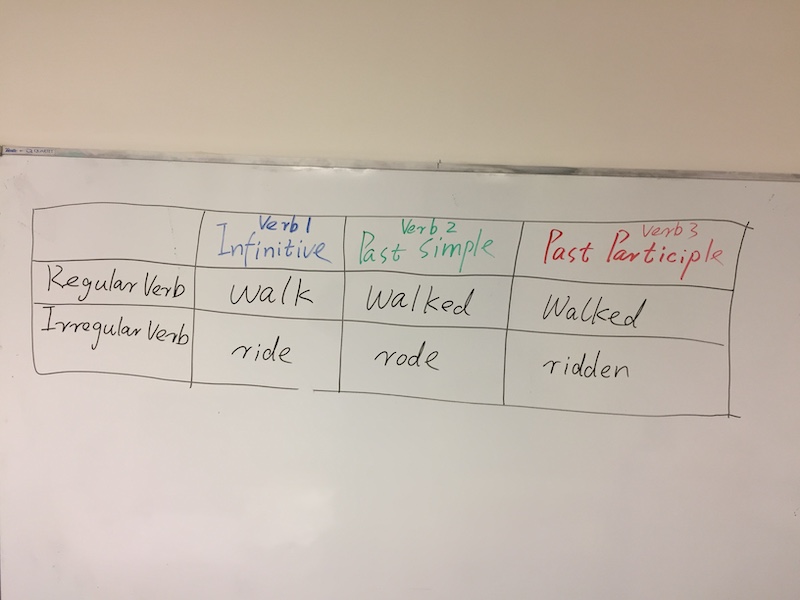 Verb 1 Verb 2 Verb 3
Infinitive Past Simple Past Participle
Regular Verb walk Walked Walked
Irregular Verb ride rode ridden